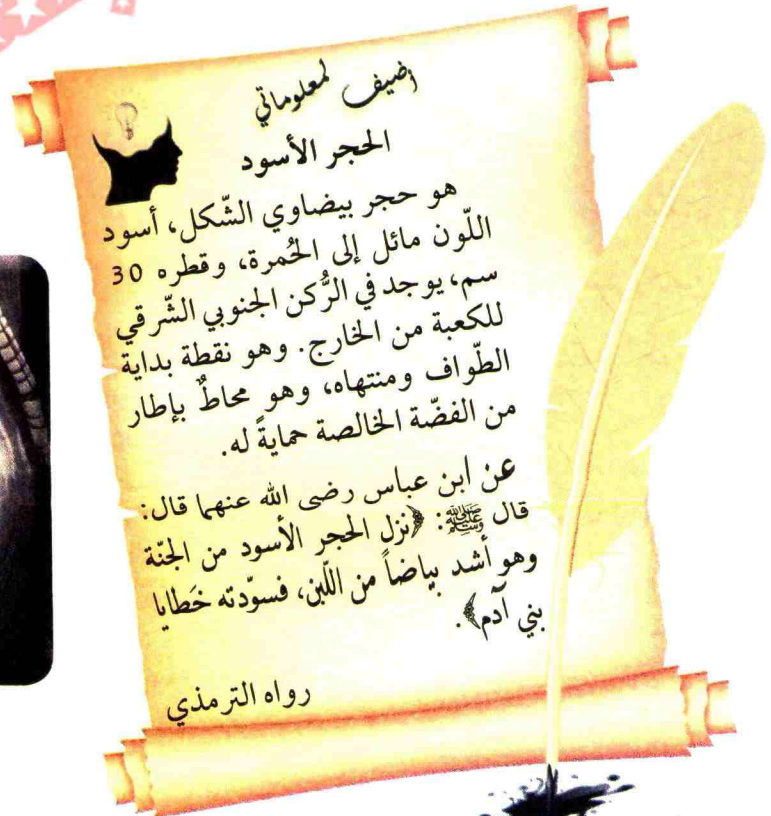 أضيف لمعلوماتي
الحجر الأسود
هو حجر بيضاوي الشّكل، أسود
اللّون مائل إلى الحُمرة، وقطره 30
سم، يوجد في الرُّكن الجنوبي الشّرقي
للكعبة من الخارج. وهو نقطة بداية
الطّواف ومنتهاه، وهو محاطٌ بإطار
من الفضّة الخالصة حمايةً له.
عن ابن عباس رضى الله عنهما قال:
قال ﷺ: ﴿نزل الحجر الأسود من الجنّة
وهو أشد بياضاً من اللّبن، فسوّدته خَطايا
بني آدم﴾.
رواه الترمذي